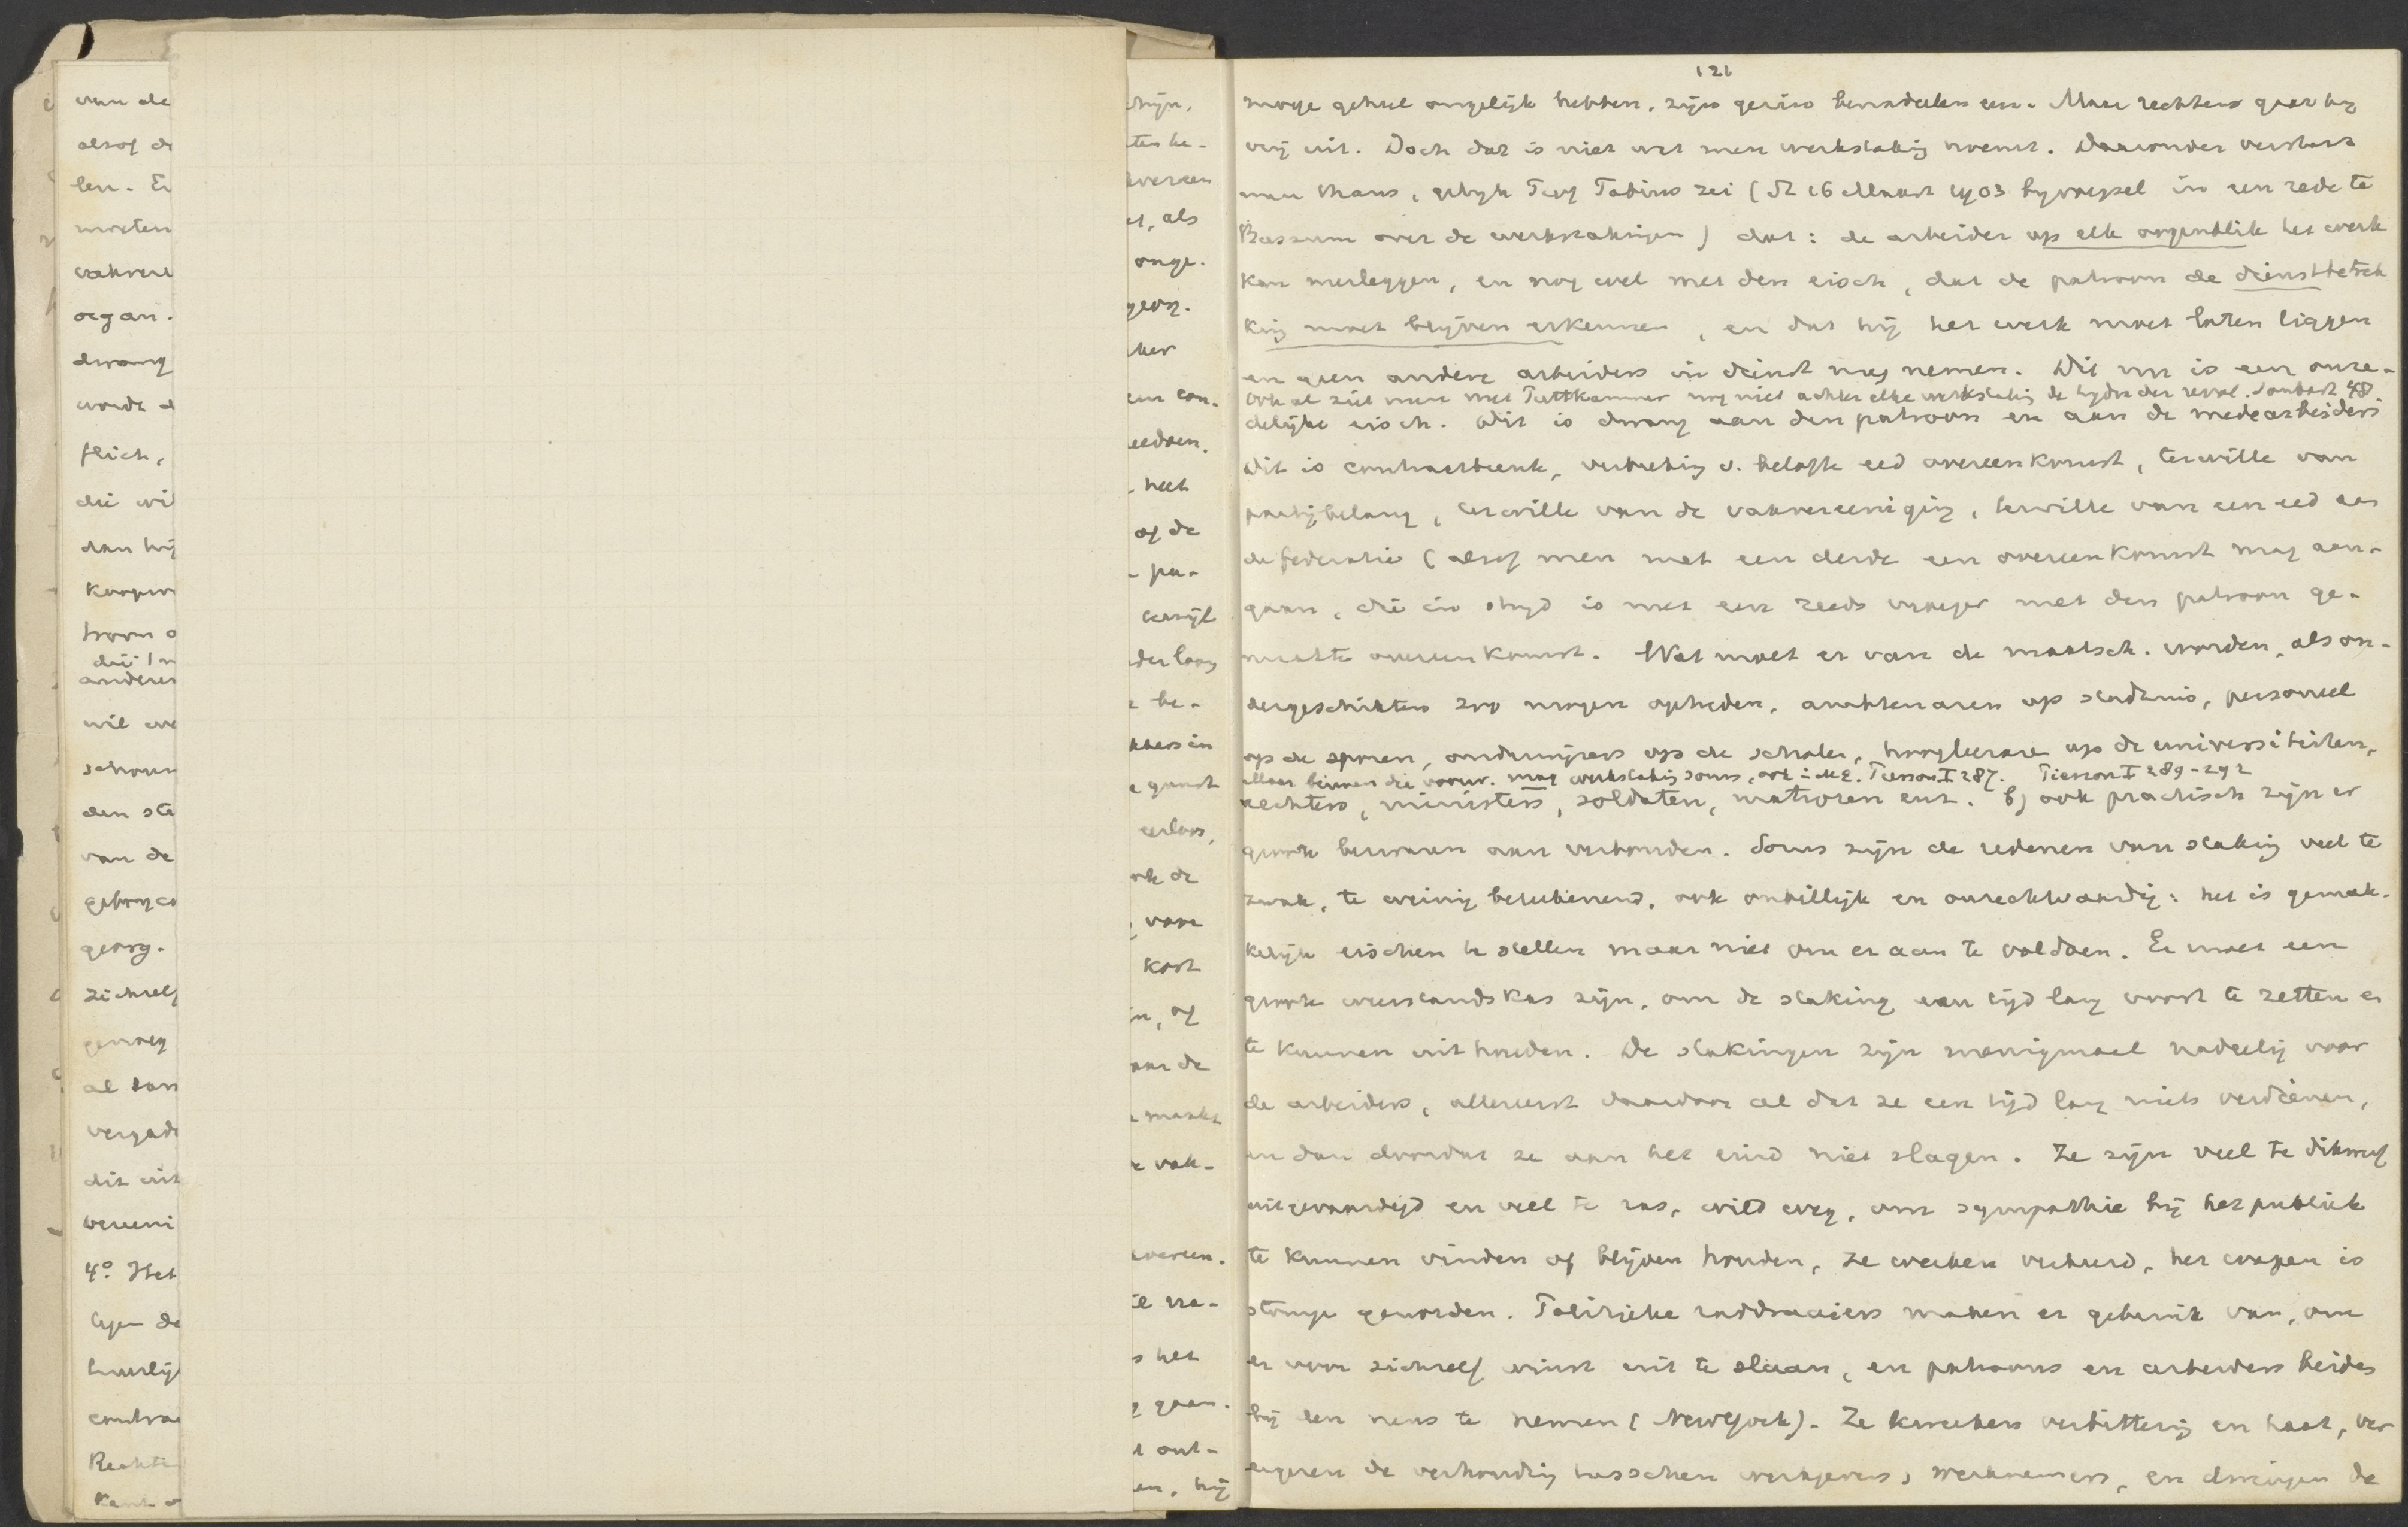 van de
alsof de
len. En
moeten
vakvere
organ.
dwang
wordt
plicht,
die wil
dan hij
troon
die
anderen
wil
schouw
den sta
van de
georg.
zichzelf
genoeg
al
vergad
dit uit
vereeni
4o. Het
tegen de
contrac
Rechte
als
onge.
georg.
een con.
heeft
of de
pa-
terwijl
be-
eerloos,
ook de
voor
kost
of
aar de
maakt
vak-
te vra-
het
gaan.
ont-
en, hij
121
moge geheel ongelijk hebben, zijn gezin benadeelen enz. Maar rechtens gaat hij
vrij uit. Doch dat is niet wat men werkstaking noemt. Daaronder verstaat
men thans, gelijk Prof Fabius zei (Dr 16 Maart 1903 bijvoegsel in een rede te
Bussum over de werkstakingen) dat: de arbeider op elk oogenblik het werk
kan neerleggen, en nog wel met den eisch, dat de patroon de dienstbetrek
king moet blijven erkennen, en dat hij het werk moet laten liggen
en geen andere arbeiders in dienst mag nemen. Dit nu is een onre-
ook al ziet men met Puttkammer nog niet achter elke werkstaking de hydra der revol. Sombart 48.
delijke eisch. Dit is dwang aan den patroon en aan de medearbeiders
dit is contractbreuk, verbreking v. belofte eed overeenkomst, terwille van
partijbelang, terwille van de vakvereeniging, terwille van een eed aan
de federatie (alsof men met een derde een overeenkomst mag aan-
gaan, die in strijd is met een reeds vroeger met den patroon ge-
maakte overeenkomst. Wat moet er van de maatsch. worden, als on-
dergeschikten zoo mogen optreden, ambtenaren op stadhuis, personeel
op de sporen, onderwijzers op de scholen, hoogleeraren op de universiteiten,
Maar binnen die voorw. mag werkstaking soms, ook i. M.E. Pierson I 287. Pierson I 289-292
rechters, ministers, soldaten, matrozen enz. b) ook practisch zijn er
groote bezwaren aan verbonden. Soms zijn de redenen van staking veel te
zwak, te weinig beteekenend, ook onbillijk en onrechtvaardig: het is gemak-
kelijk eischen te stellen maar niet om er aan te voldoen. Er moet een
groote weerstandskas zijn, om de staking een tijd lang voort te zetten en
te kunnen uithouden. De stakingen zijn menigmaal nadeelig voor
de arbeiders, allereerst daardoor al dat ze een tijd lang niets verdienen,
en dan doordat ze aan het eind niet slagen. Ze zijn veel te dikwijls
uitgevaardigd en veel te ras, wild weg, om sympathie bij het publiek
te kunnen vinden of blijven houden, ze werken verkeerd, het wapen is
stomp geworden. Politieke raddraaiers maken er gebruik van, om
er voor zichzelf winst uit te slaan, en patroons en arbeiders beide
bij den neus te nemen (NewYork). Ze kweeken verbittering en haat, ver
ergeren de verhouding tusschen werkgevers, werknemers, en dwingen de